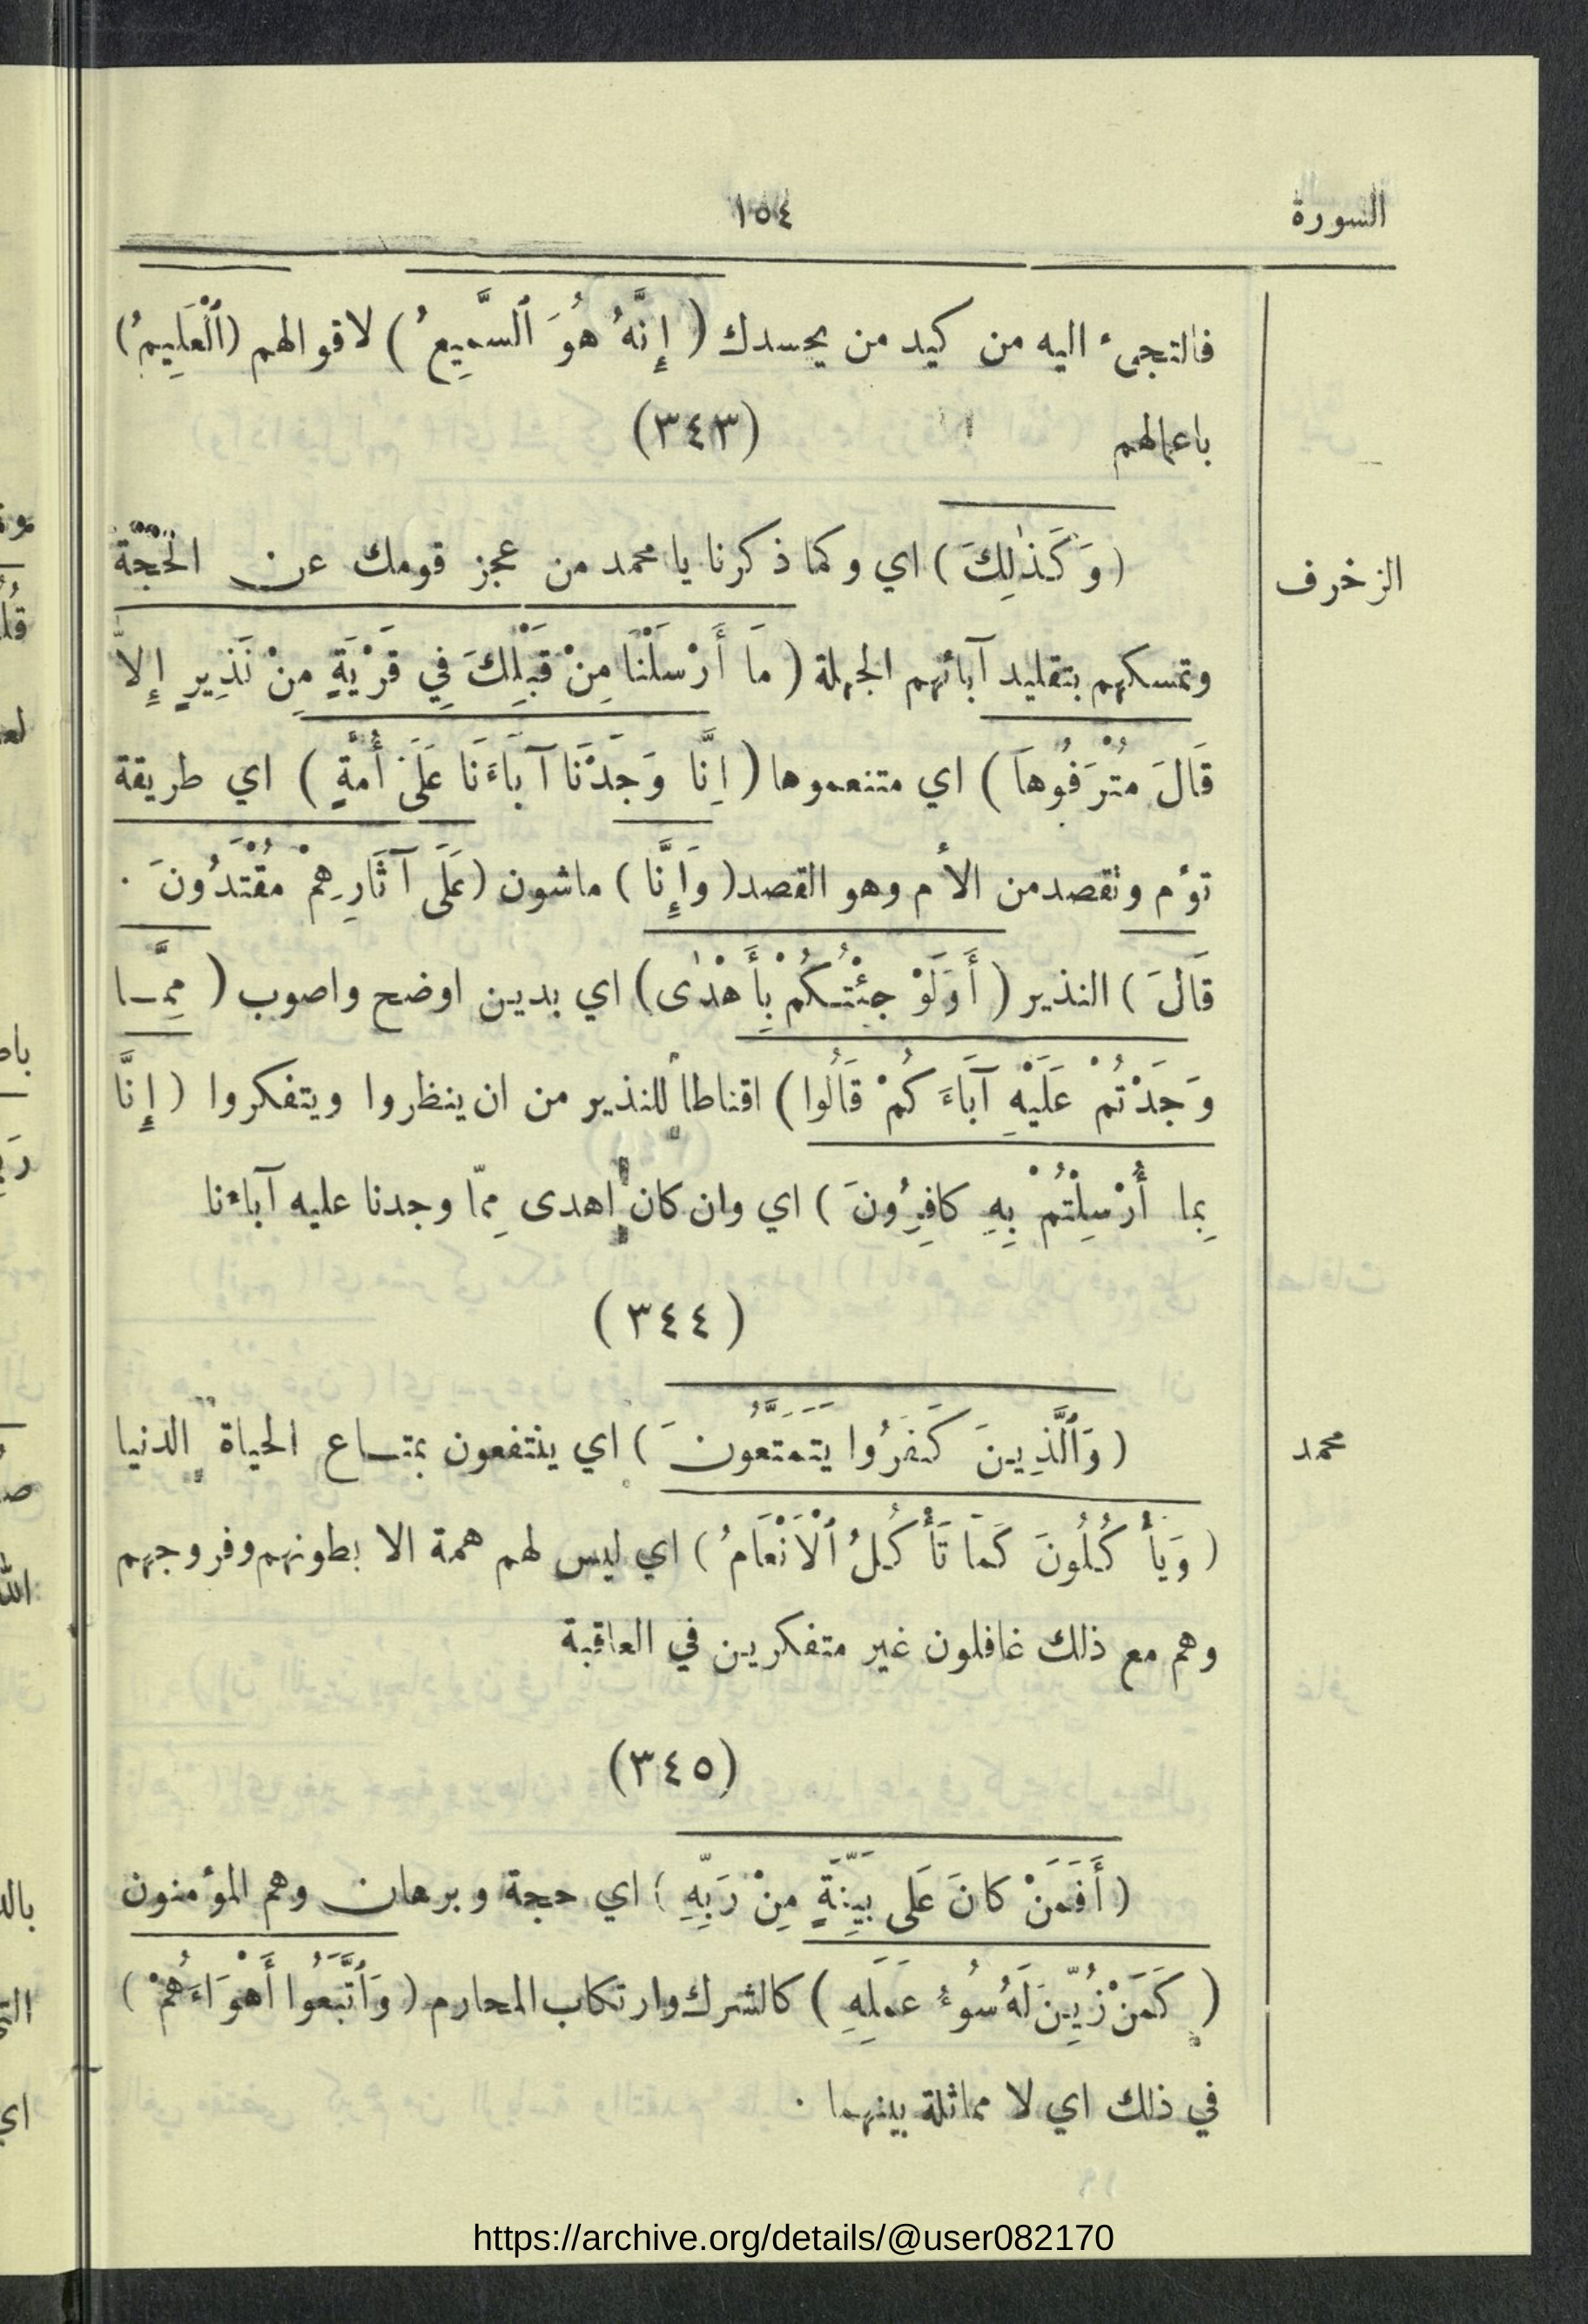 السورة ١٥٤
فالتجىء اليه من كيد من يحسدك ( إِنَّهُ هُوَ ٱلسَّمِيعُ ) لاقوالهم (ٱلْعَلِيمُ)
باعمالهم (٣٤٣)
الزخرف (وَكَذٰلِكَ ) اي وكما ذكرنا يا محمد من عجز قومك عن الحجّة
وتمسكهم بتقليد آبائهم الجهلة ( مَا أَرْسَلْنَا مِنْ قَبْلِكَ فِي قَرْيَةٍ مِنْ نَذِيرٍ إِلاَّ
قَالَ مُتْرَفُوهَا ) اي متنعموها ( اِنَّا وَجَدْنَا آبَاءَنَا عَلَى أُمَّةٍ ) اي طريقة
تؤم وتقصد من الأم وهو القصد ( وَإِنَّا ) ماشون ( عَلَى آثَارِهِمْ مُقْتَدُونَ .
قَالَ ) النذير ( أَوَلَوْ جِئْتُكُمْ بِأَهْدٰى ) اي بدين اوضح واصوب ( مِمَّا
وَجَدْتُمْ عَلَيْهِ آبَاءَكُمْ قَالُوا ) اقناطاً للنذير من ان ينظروا ويتفكروا ( إِنَّا
بِمَا أُرْسِلْتُمْ بِهِ كافِرُونَ ) اي وان كان اهدى مِمّا وجدنا عليه آباءنا
( ٣٤٤ )
محمد ( وَٱلَّذِينَ كَفَرُوا يَتَمَتَّعُونَ ) اي ينتفعون بمتاع الحياة الدنيا
( وَيَأْكُلُونَ كَمَا تَأْكُلُ ٱلْاَنْعَامُ ) اي ليس لهم همة الا بطونهم وفروجهم
وهم مع ذلك غافلون غير متفكرين في العاقبة
(٣٤٥)
( أَفَمَنْ كانَ عَلَى بَيِّنَةٍ مِنْ رَبِّهِ ) اي حجة وبرهان وهم المؤمنون
( كَمَنْ زُيِّنَ لَهُ سُوءُ عَمَلِهِ ) كالشرك وارتكاب المحارم ( وَٱتَّبَعُوا أَهْوَاءَهُمْ )
في ذلك اي لا مماثلة بينهما .
https://archive.org/details/@user082170